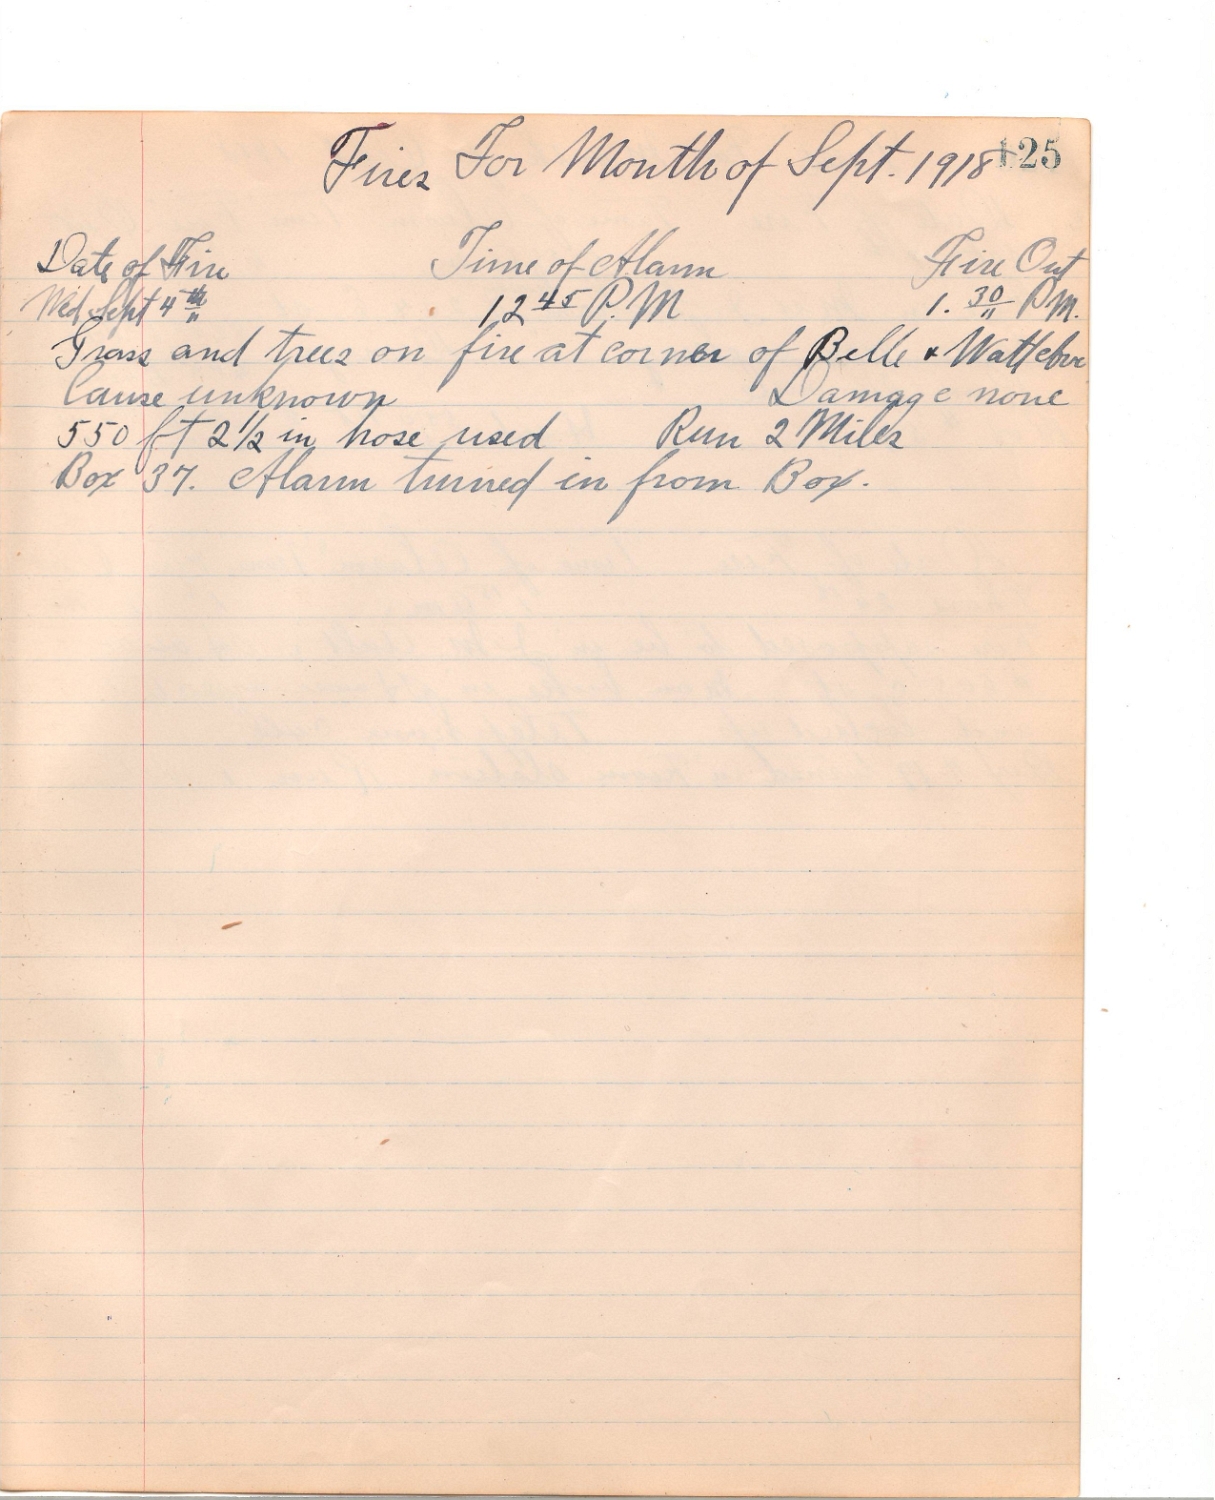 Fires For Month of Sept. 1918 125
Date of Fire Time of Alarm Fire Out
Wed. Sept 4th 12 45 P.M 1. 30 P.M.
Grass and trees on fire at corner of Belle &
Cause unknown Damage none
550 ft 2 1/2 in hose used Run 2 Miles
Box 37. Alarm turned in from Box.